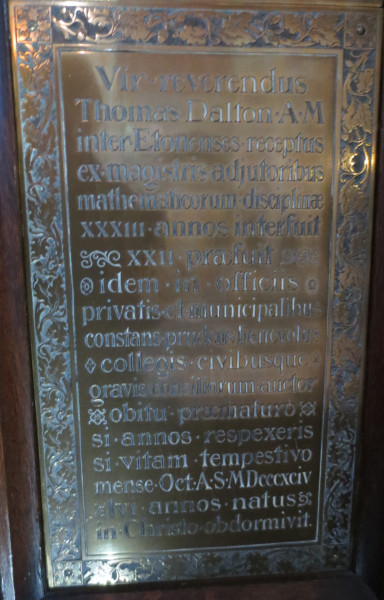 Vir · reverendus
Thomas Dalton · A · M
inter Etonenses · receptus
ex · magistris adjutoribus
mathematicorum · disciplinæ
XXXIII · annos interfuit
XXII · præfuit
idem · in · officiis
privatis · et · municipalibus
constans · prudens · benevolus
collegis · civibusque
gravis consiliorum auctor
obitu · præmaturo
si · annos · respexeris
si · vitam · tempestivo
mense · Oct · A · S · MDCCCXCIV
annos · natus
in · Christo · obdormivit